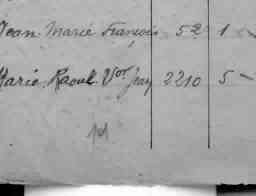 Jean Marie François 52 1
Marie Raoul Vor Jean 2210 5